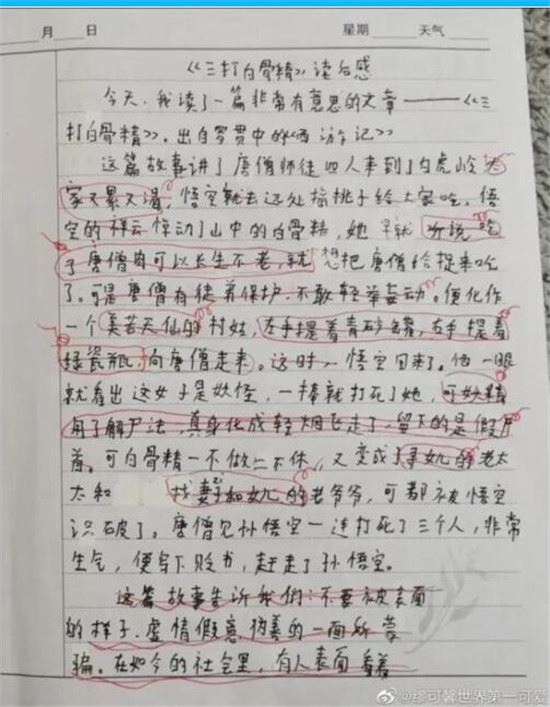 月 日 星期 天气
《三打白骨精》读后感
今天,我读了一篇非常有意思的文章——《三
打白骨精》,出自罗贯中的《西游记》
这篇故事讲了唐僧师徒四人来到了白虎岭,
家又累又渴,悟空就去远处摘桃子给大家吃。悟
空的祥云惊动了山中的白骨精,她早就听说吃
了唐僧肉可以长生不老,就想把唐僧给捉来吃
了。可是唐僧有徒弟保护,不敢轻举妄动。便化作
一个美若天仙的村姑,左手提着青砂罐,右手提着
绿瓷瓶,向唐僧走来。这时,悟空回来了。他一眼
就看出这女子是妖怪,一棒就打死了她,可妖精
用了解尸法,真身化成轻烟飞走了,留下的是假尸
首。可白骨精一不做二不休,又变成了寻女儿的老太
太和 找妻子和女儿的老爷爷,可都被悟空
识破了。唐僧见孙悟空一连打死了三个人,非常
生气,便写下贬书,赶走了孙悟空。
这篇故事告诉我们:不要被表面
的样子,虚情假意,伪善的一面所蒙
骗。在如今的社会里,有人表面看着
@缪可馨世界第一可爱